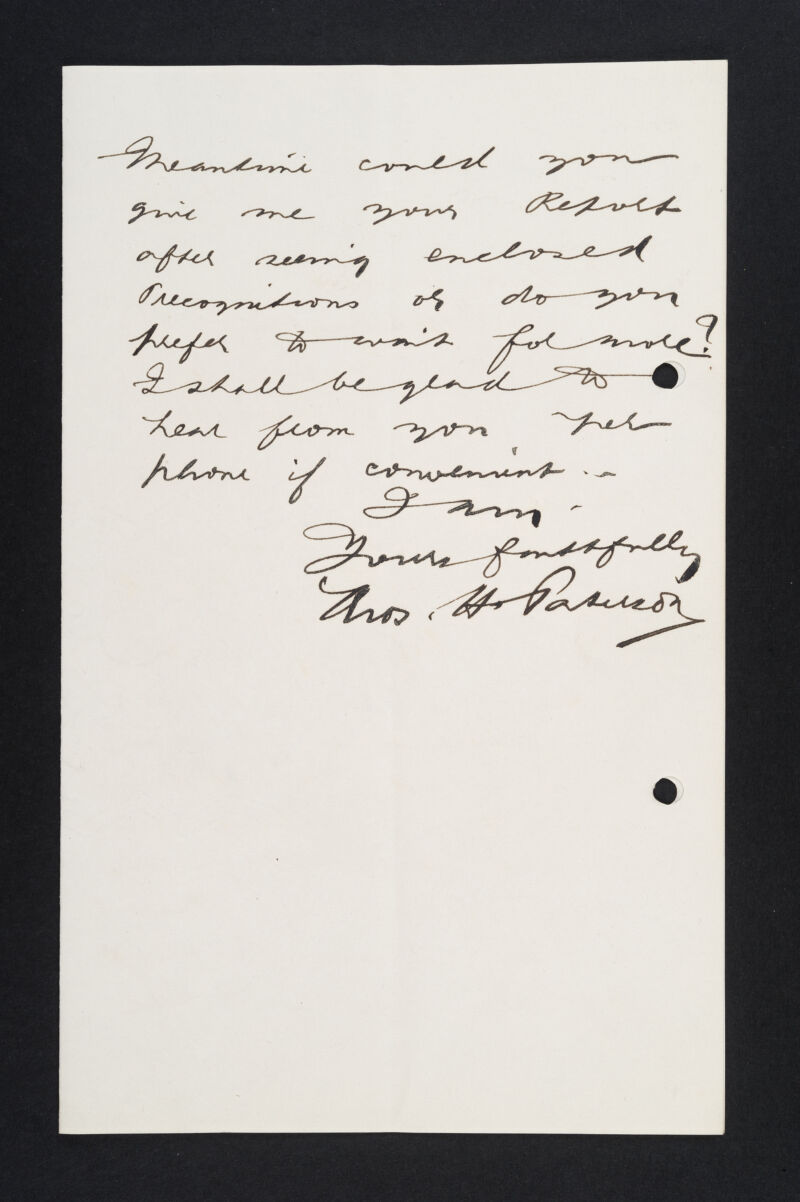 Meantime could you
give me your Report
after seeing enclosed
Precognitions or do you
prefer to wait for more?
I shall be glad to
hear from you per
phone if convenient.
I am.
Yours faithfully
Thos. H. Paterson